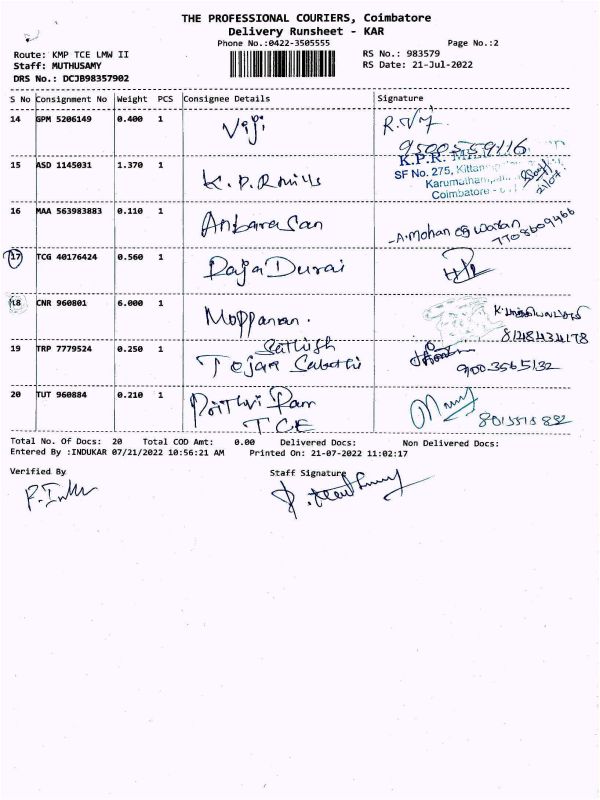 THE PROFESSIONAL COURIERS, Coimbatore
Delivery Runsheet - KAR
Phone No.:0422-3505555 Page No.:2
Route: KMP TCE LMW II RS No.: 983579
Staff: MUTHUSAMY RS Date: 21-Jul-2022
DRS No.: DCJB98357902
S No Consignment No Weight PCS Consignee Details Signature
14 GPM 5206149 0.400 1 Viji
9500559116
15 ASD 1145031 1.370 1 K.P.R mills K.P.R.
SF No. 275,
Coimbatore -
16 MAA 563983883 0.110 1 Anbarasan A.Mohan
7708609466
17 TCG 40176424 0.560 1 Raja Durai
18 CNR 960801 6.000 1 Mopparan.
8148434178
19 TRP 7779524 0.250 1 Sathish
9003565132
20 TUT 960884 0.210 1 Prithvi Ram
TCE
Total No. Of Docs: 20 Total COD Amt: 0.00 Delivered Docs: Non Delivered Docs:
Entered By :INDUKAR 07/21/2022 10:56:21 AM Printed On: 21-07-2022 11:02:17
Verified By Staff Signature